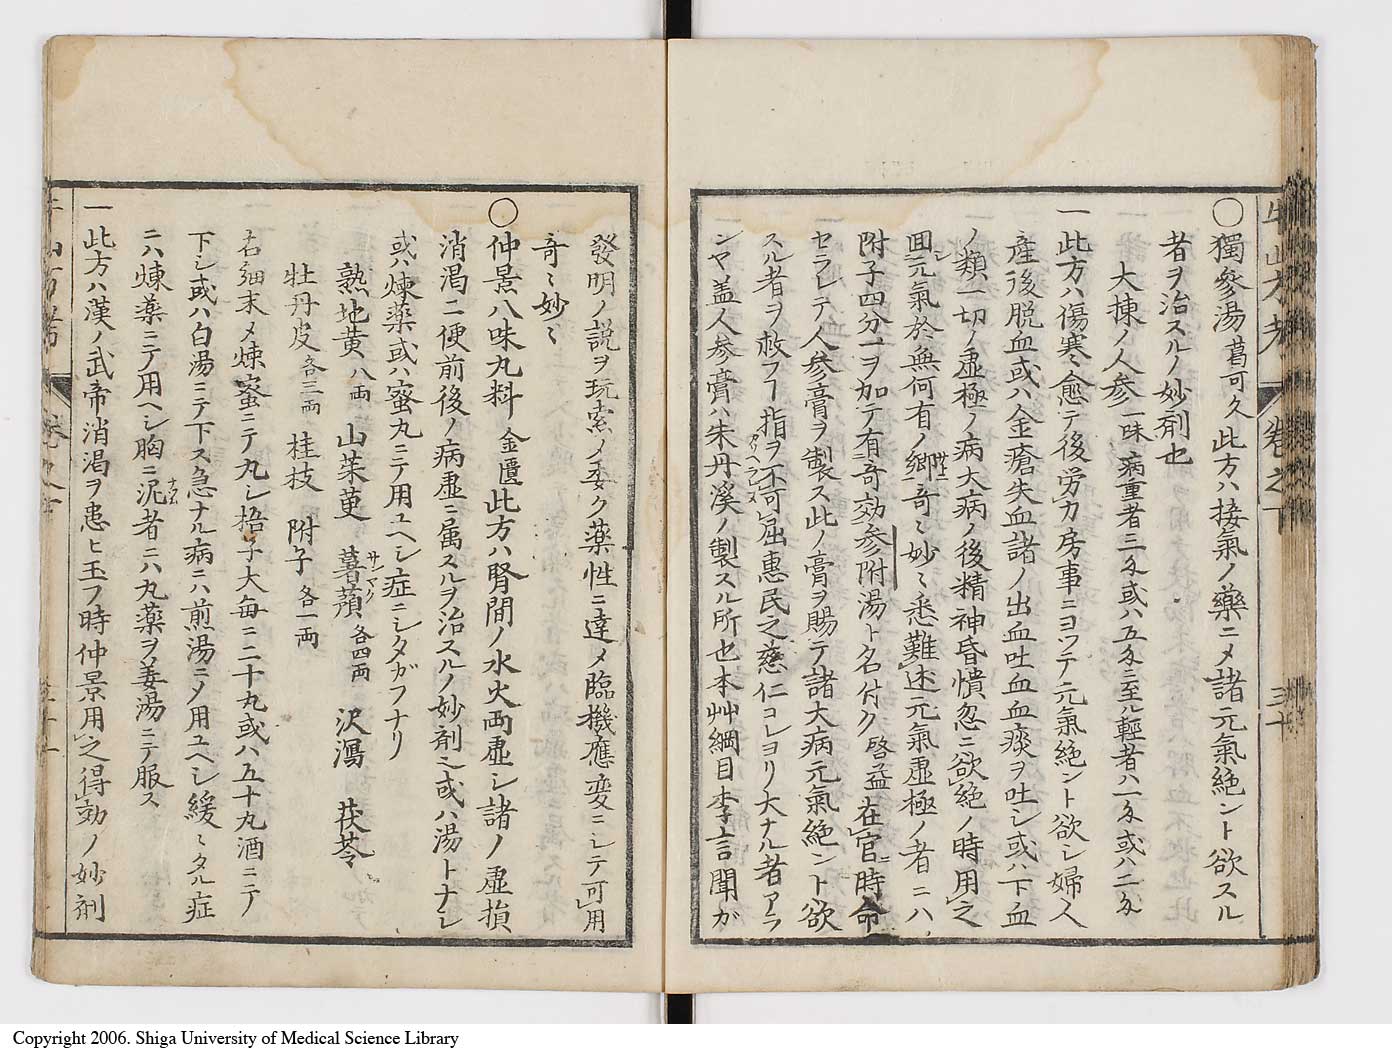 牛山方考 卷之下 三十
〇獨參湯 葛可久 此方ハ接氣ノ藥ニメ諸元氣絶ント欲スル
者ヲ治スルノ妙剤也
大棟ノ人参 一味 病重者三匁或ハ五匁ニ至ル輕者ハ一匁或ハ二匁
一此方ハ傷寒愈テ後労力房事ニヨツテ元氣絶ント欲シ婦人
産後脱血或ハ金瘡失血諸ノ出血吐血血痰ヲ吐シ或ハ下血
ノ類一切ノ虚極ノ病大病ノ後精神昏憒忽ニ欲絶ノ時用之
回元氣於無何有ノ郷奇〻妙〻悉難述元氣虚極ノ者ニハ
附子四分一ヲ加テ有奇効参附湯ト名付ク啓益在官ニ時命
セラレテ人参膏ヲ製ス此ノ膏ヲ賜テ諸大病元氣絶ント欲
スル者ヲ救フヿ指ヲ不可屈惠民之慈仁コレヨリ大ナル者アラ
ンヤ蓋人参膏ハ朱丹溪ノ製スル所也本艸綱目李言聞ガ
發明ノ説ヲ玩索メ委ク薬性ニ達メ臨機應変ニシテ可用
奇〻妙〻
〇仲景八味丸料 金匱 此方ハ腎間ノ水火両虚シ諸ノ虚損
消渇二便前後ノ病虚ニ属スルヲ治スルノ妙剤之或ハ湯トナシ
或ハ煉薬或ハ蜜丸ニテ用ユヘシ症ニシタガフナリ
熟地黄 八両 山茱萸 薯蕷 各四両 沢瀉 茯苓
牡丹皮 各三両 桂枝 附子 各一両
右細末メ煉蜜ニテ丸シ梧子大毎ニ二十丸或ハ五十丸酒ニテ
下シ或ハ白湯ニテ下ス急ナル病ニハ煎湯ニメ用ユヘシ緩〻タル症
ニハ煉薬ニテ用ヘシ胸ニ泥者ニハ丸薬ヲ姜湯ニテ服ス
一此方ハ漢ノ武帝消渇ヲ患ヒ玉フ時仲景用之得効ノ妙剤
Copyright 2006. Shiga University of Medical Science Library